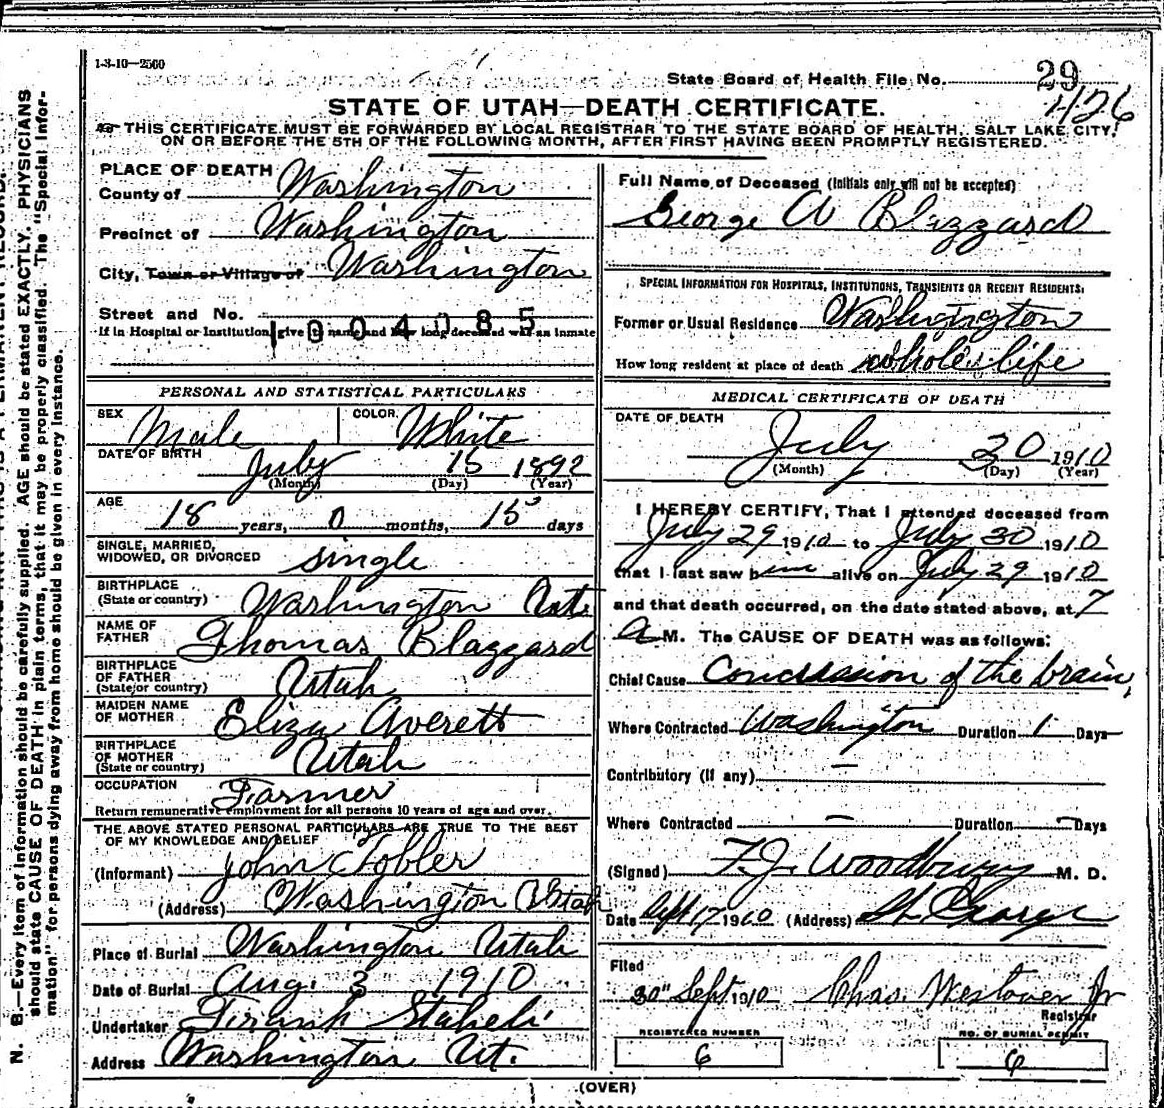 1-3-10—2500
State Board of Health File No. 29
426
STATE OF UTAH—DEATH CERTIFICATE.
THIS CERTIFICATE MUST BE FORWARDED BY LOCAL REGISTRAR TO THE STATE BOARD OF HEALTH, SALT LAKE CITY,
ON OR BEFORE THE 5TH OF THE FOLLOWING MONTH, AFTER FIRST HAVING BEEN PROMPTLY REGISTERED.
PLACE OF DEATH
County of Washington
Precinct of Washington
City, Town or Village of Washington
Street and No.
If in Hospital or Institution, give name and how long deceased was an inmate
1004085
PERSONAL AND STATISTICAL PARTICULARS
SEX Male COLOR White
DATE OF BIRTH July 15 1892
(Month) (Day) (Year)
AGE 18 years, 0 months, 15 days
SINGLE, MARRIED,
WIDOWED, OR DIVORCED single
BIRTHPLACE
(State or country) Washington Utah
NAME OF
FATHER Thomas Blazzard
BIRTHPLACE
OF FATHER
(State or country) Utah
MAIDEN NAME
OF MOTHER Eliza Averett
BIRTHPLACE
OF MOTHER
(State or country) Utah
OCCUPATION Farmer
Return remunerative employment for all persons 10 years of age and over.
THE ABOVE STATED PERSONAL PARTICULARS ARE TRUE TO THE BEST
OF MY KNOWLEDGE AND BELIEF
(Informant) John Tobler
(Address) Washington Utah
Place of Burial Washington Utah
Date of Burial Aug. 3 1910
Undertaker Frank Staheli
Address Washington Ut.
Full Name of Deceased (Initials only will not be accepted)
George A Blazzard
SPECIAL INFORMATION FOR HOSPITALS, INSTITUTIONS, TRANSIENTS OR RECENT RESIDENTS.
Former or Usual Residence Washington
How long resident at place of death whole life
MEDICAL CERTIFICATE OF DEATH
DATE OF DEATH
July 30 1910
(Month) (Day) (Year)
I HEREBY CERTIFY, That I attended deceased from
July 29 1910 to July 30 1910
that I last saw him alive on July 29 1910
and that death occurred, on the date stated above, at 7
a M. The CAUSE OF DEATH was as follows:
Chief Cause Concussion of the brain,
Where Contracted Washington Duration 1 Days
Contributory (if any) —
Where Contracted — Duration — Days
(Signed) F. J. Woodbury M. D.
Date Sept 17 1910 (Address) St. George
Filed
30" Sept 1910 Chas. Westover Jr
Registrar
REGISTERED NUMBER
6
NO. OF BURIAL PERMIT
6
(OVER)
N. B.—Every item of information should be carefully supplied. AGE should be stated EXACTLY. PHYSICIANS
should state CAUSE OF DEATH in plain terms, that it may be properly classified. The "Special Infor-
mation" for persons dying away from home should be given in every instance.